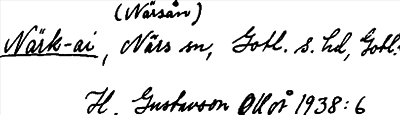 (Närsån)
Närk-ai, Närs sn, Gotl. s. hd, Gotl.
H. Gustavson OUoÅ 1938:6